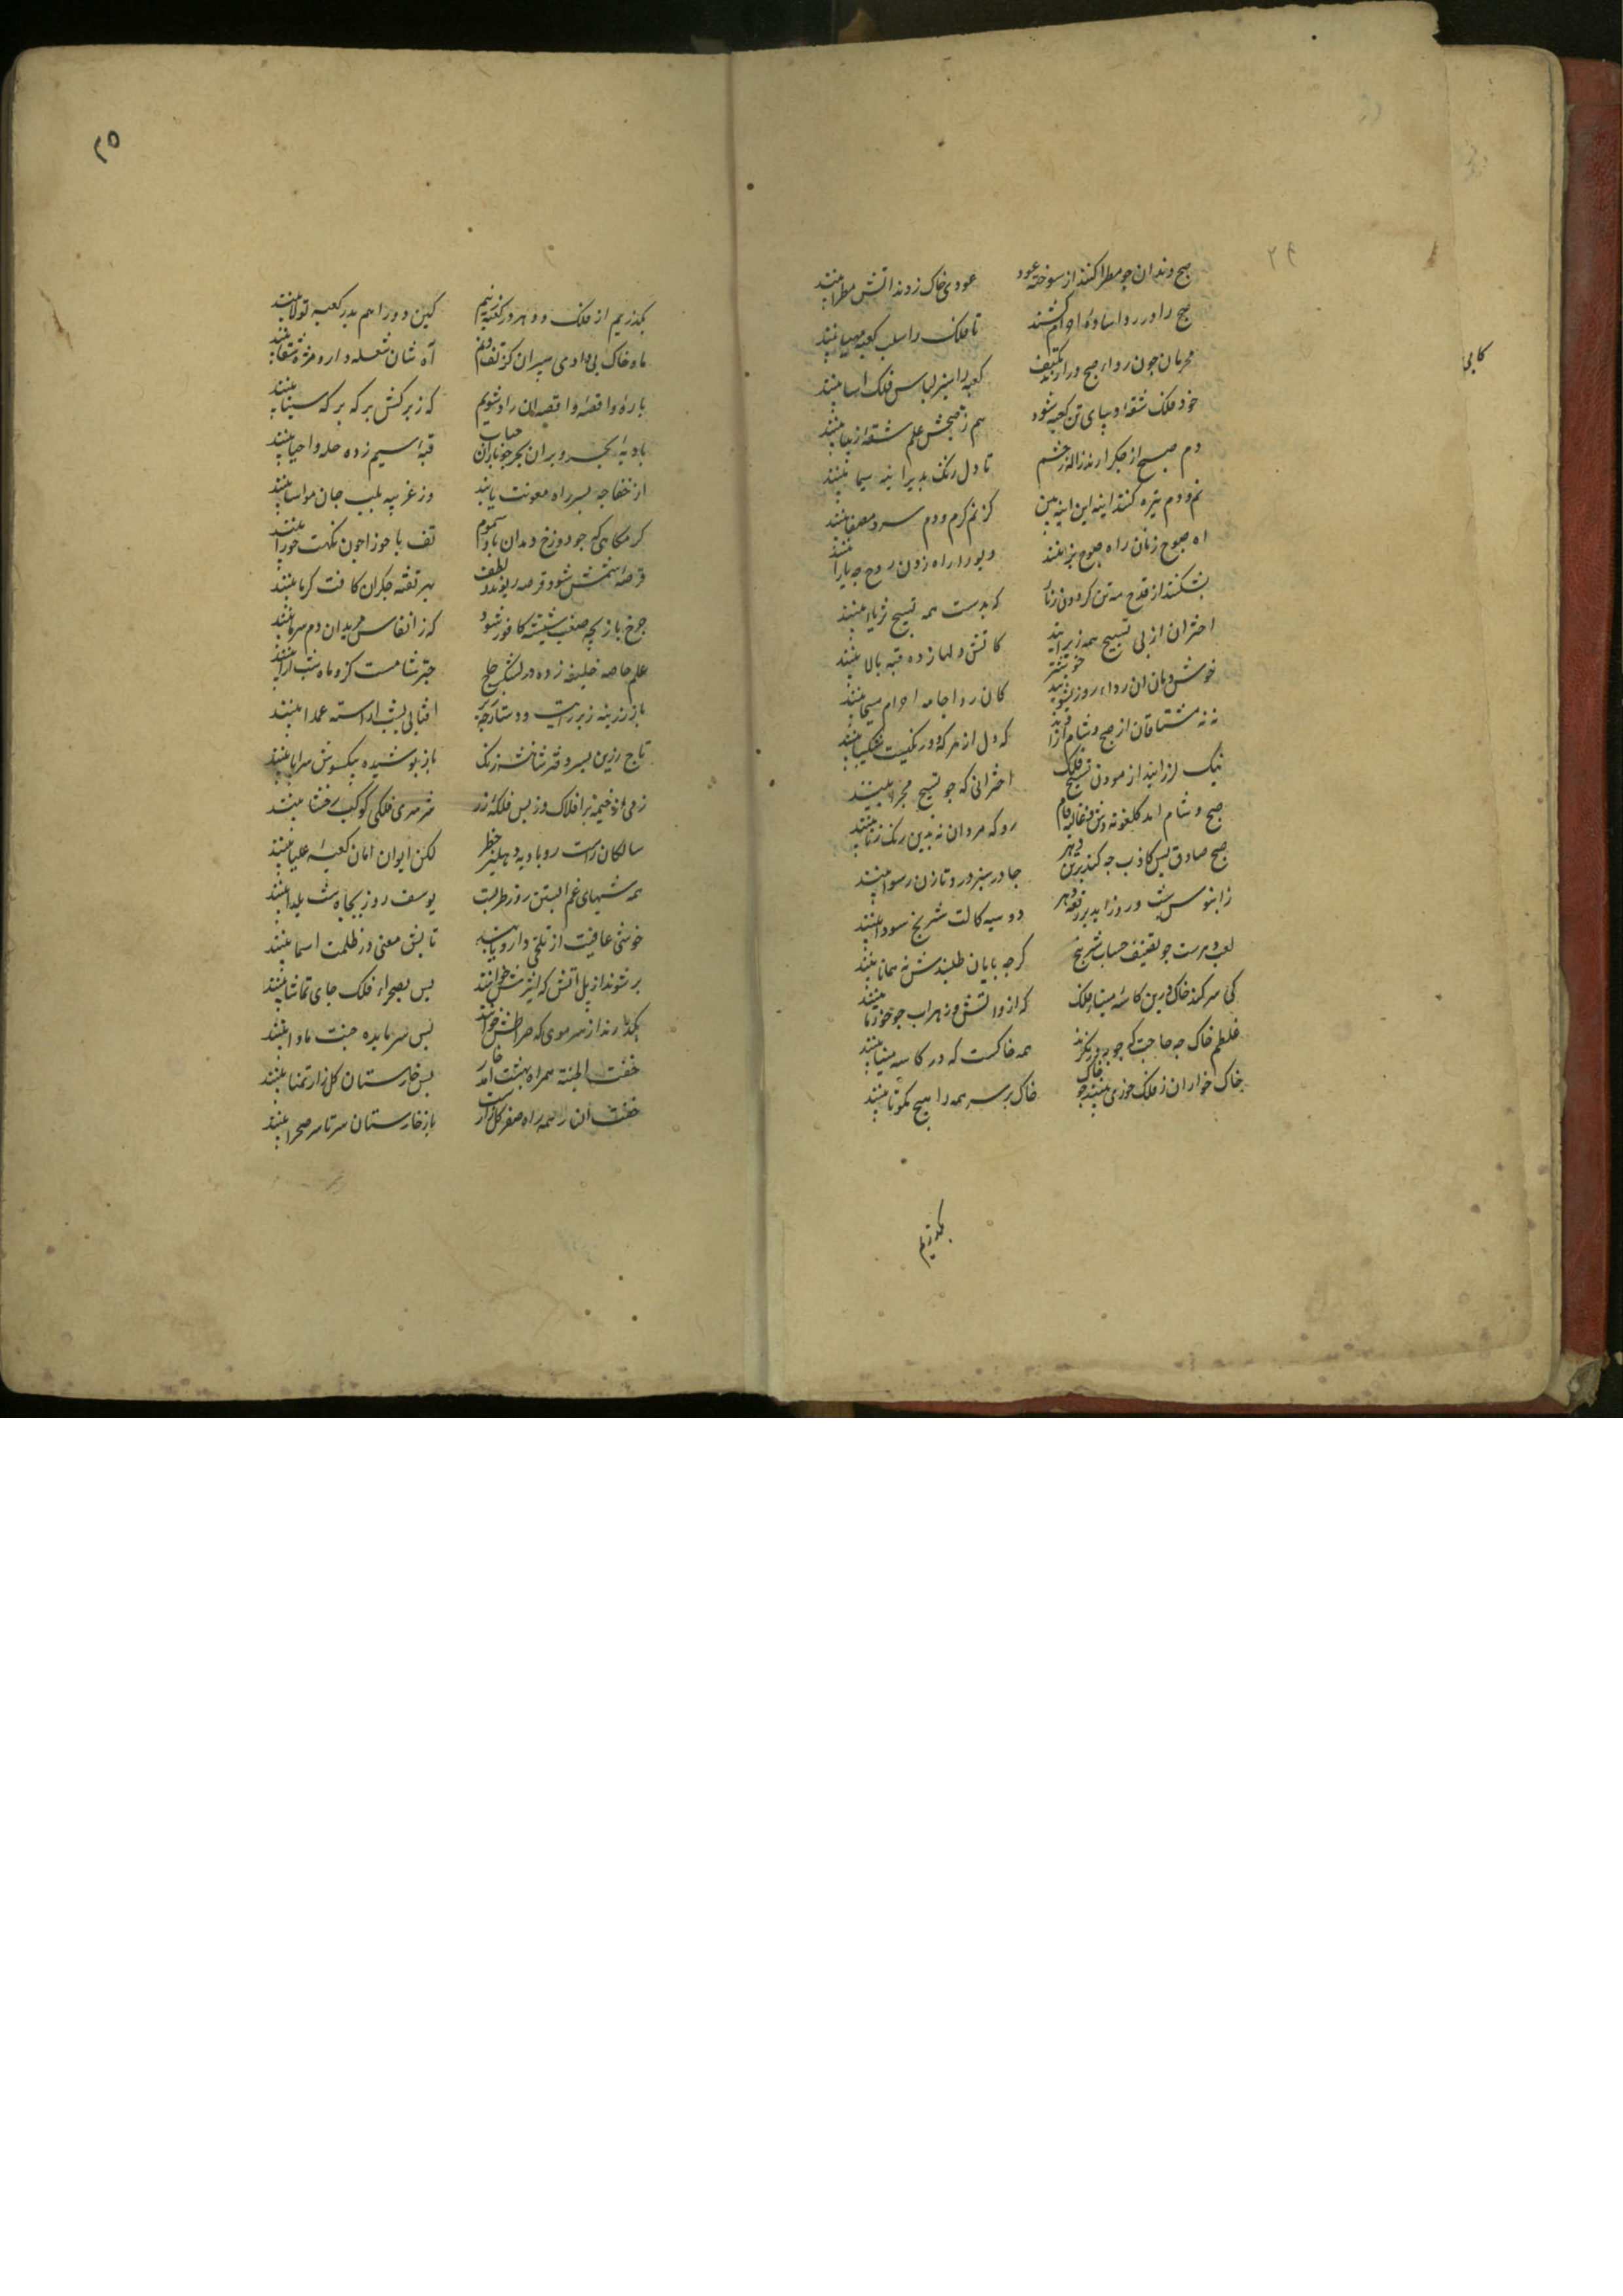 ۲۴
صبح دندان چو مطرا کند از سوخته عود عودی خاک ز دندانش مطرا بینند
صبح را در ردا ساده احرام کشند تا فلک را سلب کعبه مهیا بینند
محرمان چون رداء صبح درارند بکتف کعبه را سبز لباسی فلک اسا بینند
خود فلک شقه دیبای تن کعبه شود هم ز صبحش علم شقه زیبا بینند
دم صبح از جکر ارند و نم ژاله ز چشم تا دل زنک پذیر اینه سیما بینند
نم و دم تیره کند اینه این اینه بین کز نم کرم و دم سرد مصفا بینند
اه صبوح زنان راه صبوح بزنند دیو را راه زدن روح چه یارا بینند
بشکنند از قدح مه تن کردون زنار که بدست همه تسبیح ثریا بینند
اختران از پی تسبیح همه زیر ایند کاتش دلها زده قبه بالا بینند
خوش دمان ان رداء روز بشویید خوشتر کان ردا جامه احرام مسیحا بینند
نه نه مشتاقان از صبح و شام ازادند که دل از هر که دو رنکیست شکیبا بینند
نیک لرزانند از مودن تسبیح فلک اخترانی که چو تسبیح مجزا بینند
صبح و شام امد کلغونه وش و غالیه فام رو که مردان نه بدین رنک زنانه بینند
صبح صادق پس کاذب چه کند بر تن دهر چادر سبز درد تا زن رسوا بینند
زابنوس شب و روز امد بر رقعه دهر دو سیه کالت شطرنج سودا بینند
لعب دهرست چو تضعیف حساب شطرنج کرچه پایان طلبندش نه همانا بینند
کی سر کند خاک درین کاسه مینا فلک که از و اتش و زهراب چو خور تا بینند
غلطم خاک چه حاجت که چو بررنکرند همه خاکست که در کاسه مینا بینند
خاک خواران ز فلک خوری بینند چو خاک خاک بر سر همه را هیچ مکو تا بینند
بکذریم
۲۵
بکذریم از فلک و دهر و در کعبه زنیم کین دو را هم بدر کعبه تولا بینند
ما و خاک پی وادی سپران کز تف و نم آه شان مشعله دار و مژه سقا بینند
باره واقصه واقصه ان راه شویم که ز برکش برکه برکه سینا بینند
بادیه بحر و بران بحر چو باران حباب قبه سیم زده حله و احیا بینند
از خفاجه بسر راه معونت یابند وز غزیه بلب جان مواسا بینند
کرمکاهی که چو دوزخ دمدان باد سموم تف با حورا چون نکهت حورا بینند
قرصه شمس شود قرصه ریوند ز لطف بهر تفته جکران کافت کرما بینند
چرخ بازیچه صفت شیشه کافور شود که ز انفاس مریدان دم سرما بینند
علم خاصه خلیفه زده در لشکر حاج چتر شامست کزو ماه شب ارا بینند
باز زرینه زبر ایت و دستارچه زیر افتابی بشب اراسته عمدا بینند
تاج زرین بسر دختر شاخشه زنک باز پوشیده بکیسوش سراپا بینند
زمی از خیمه بر افلاک و زبس فلکه زر بر سری فلکی کوکب رخشا بینند
سالکان راست ره بادیه دهلیز خطر لکن ایوان امان کعبه علیا بینند
همه شبهای غم ابستن روز طربست یوسف روز بچاه شب یلدا بینند
خوشی عافیت از تلخی دارو یابند تابش معنی در ظلمت اسما بینند
بر شوند از پل اتش که اثیرش خوانند پس بصحراء فلک جای تماشا بینند
بکذارند از سر موی که صراطش خوانند پس سر مایده جنت ماوا بینند
حفت الجنة همراه بهشت امد خار پس خارستان کلزار تمنا بینند
حفت النار همه راه سقر کلزارست باز خارستان سر تا سر صحرا بینند